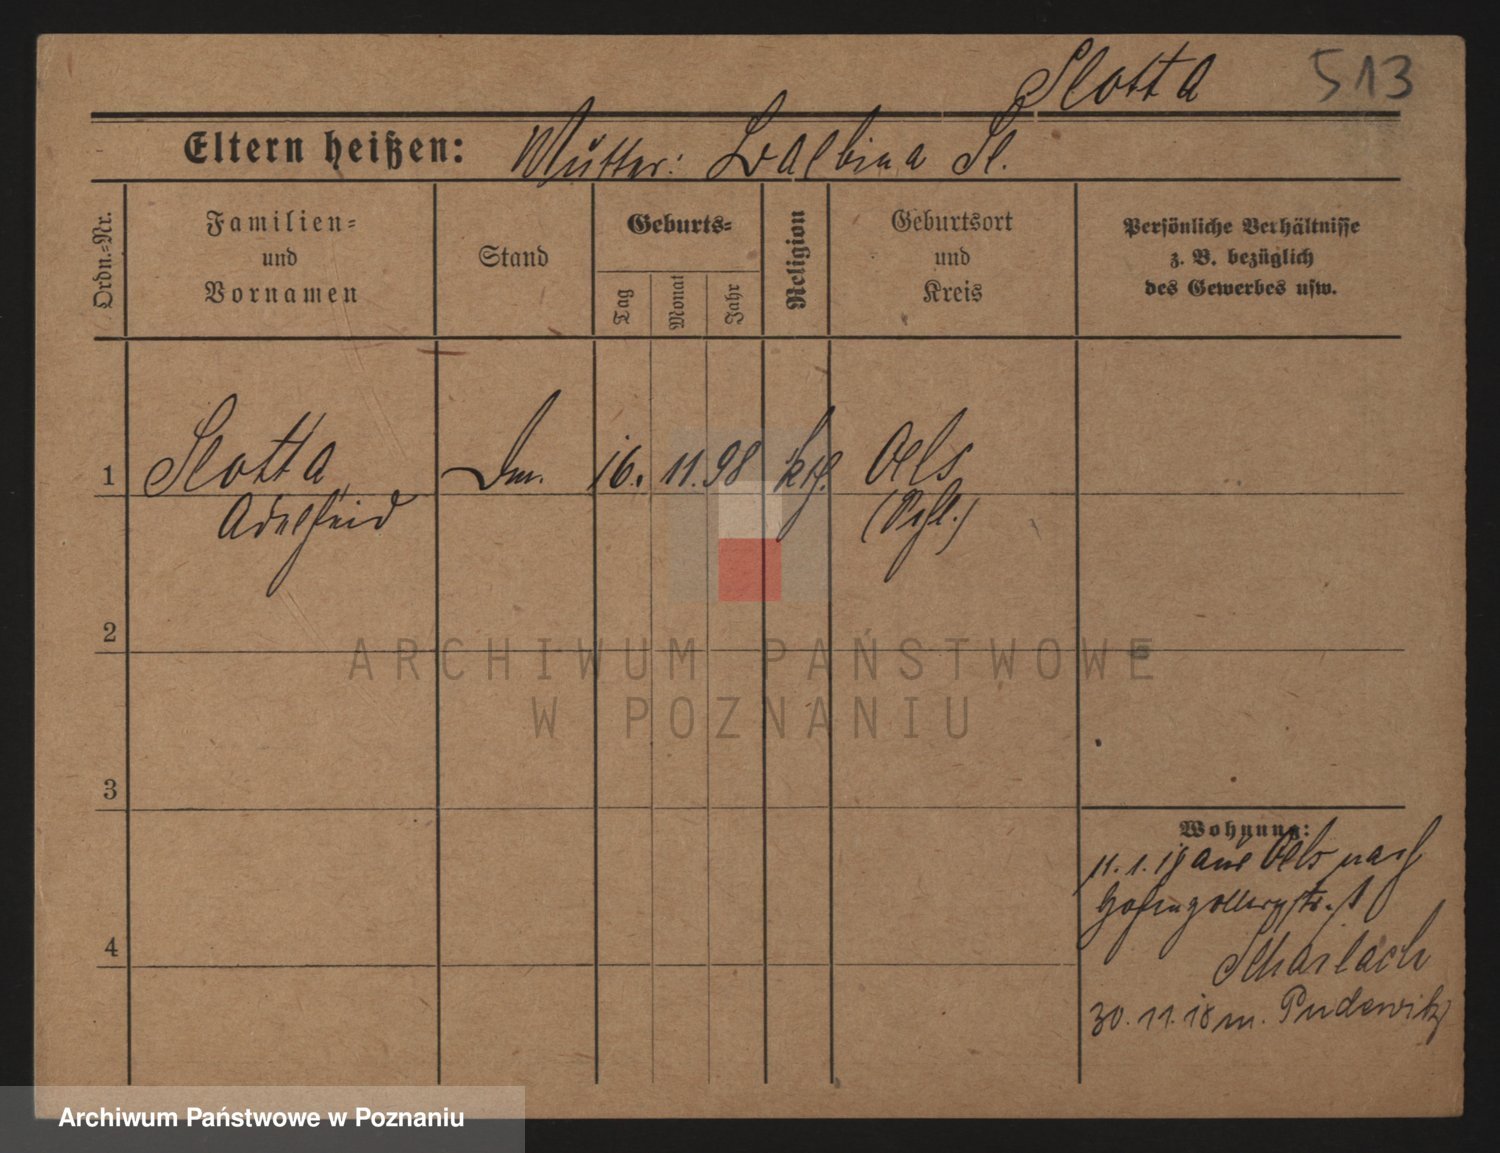 Slotta 513
Eltern heißen: Mutter: Balbina Sl.
Ordn.-Nr.
Familien-
und
Vornamen
Stand
Geburts-
Tag
Monat
Jahr
Religion
Geburtsort
und
Kreis
Persönliche Verhältnisse
z. B. bezüglich
des Gewerbes usw.
1 Slotta 16. 11. 98 kth. Oels
Adelheid (Schl.)
2
ARCHIWUM PAŃSTWOWE
W POZNANIU
3
Wohnung:
11.1.18 aus Oels nach
Hohenzollernstr. 1
4
30.11.18 n. Pudewitz
Archiwum Państwowe w Poznaniu